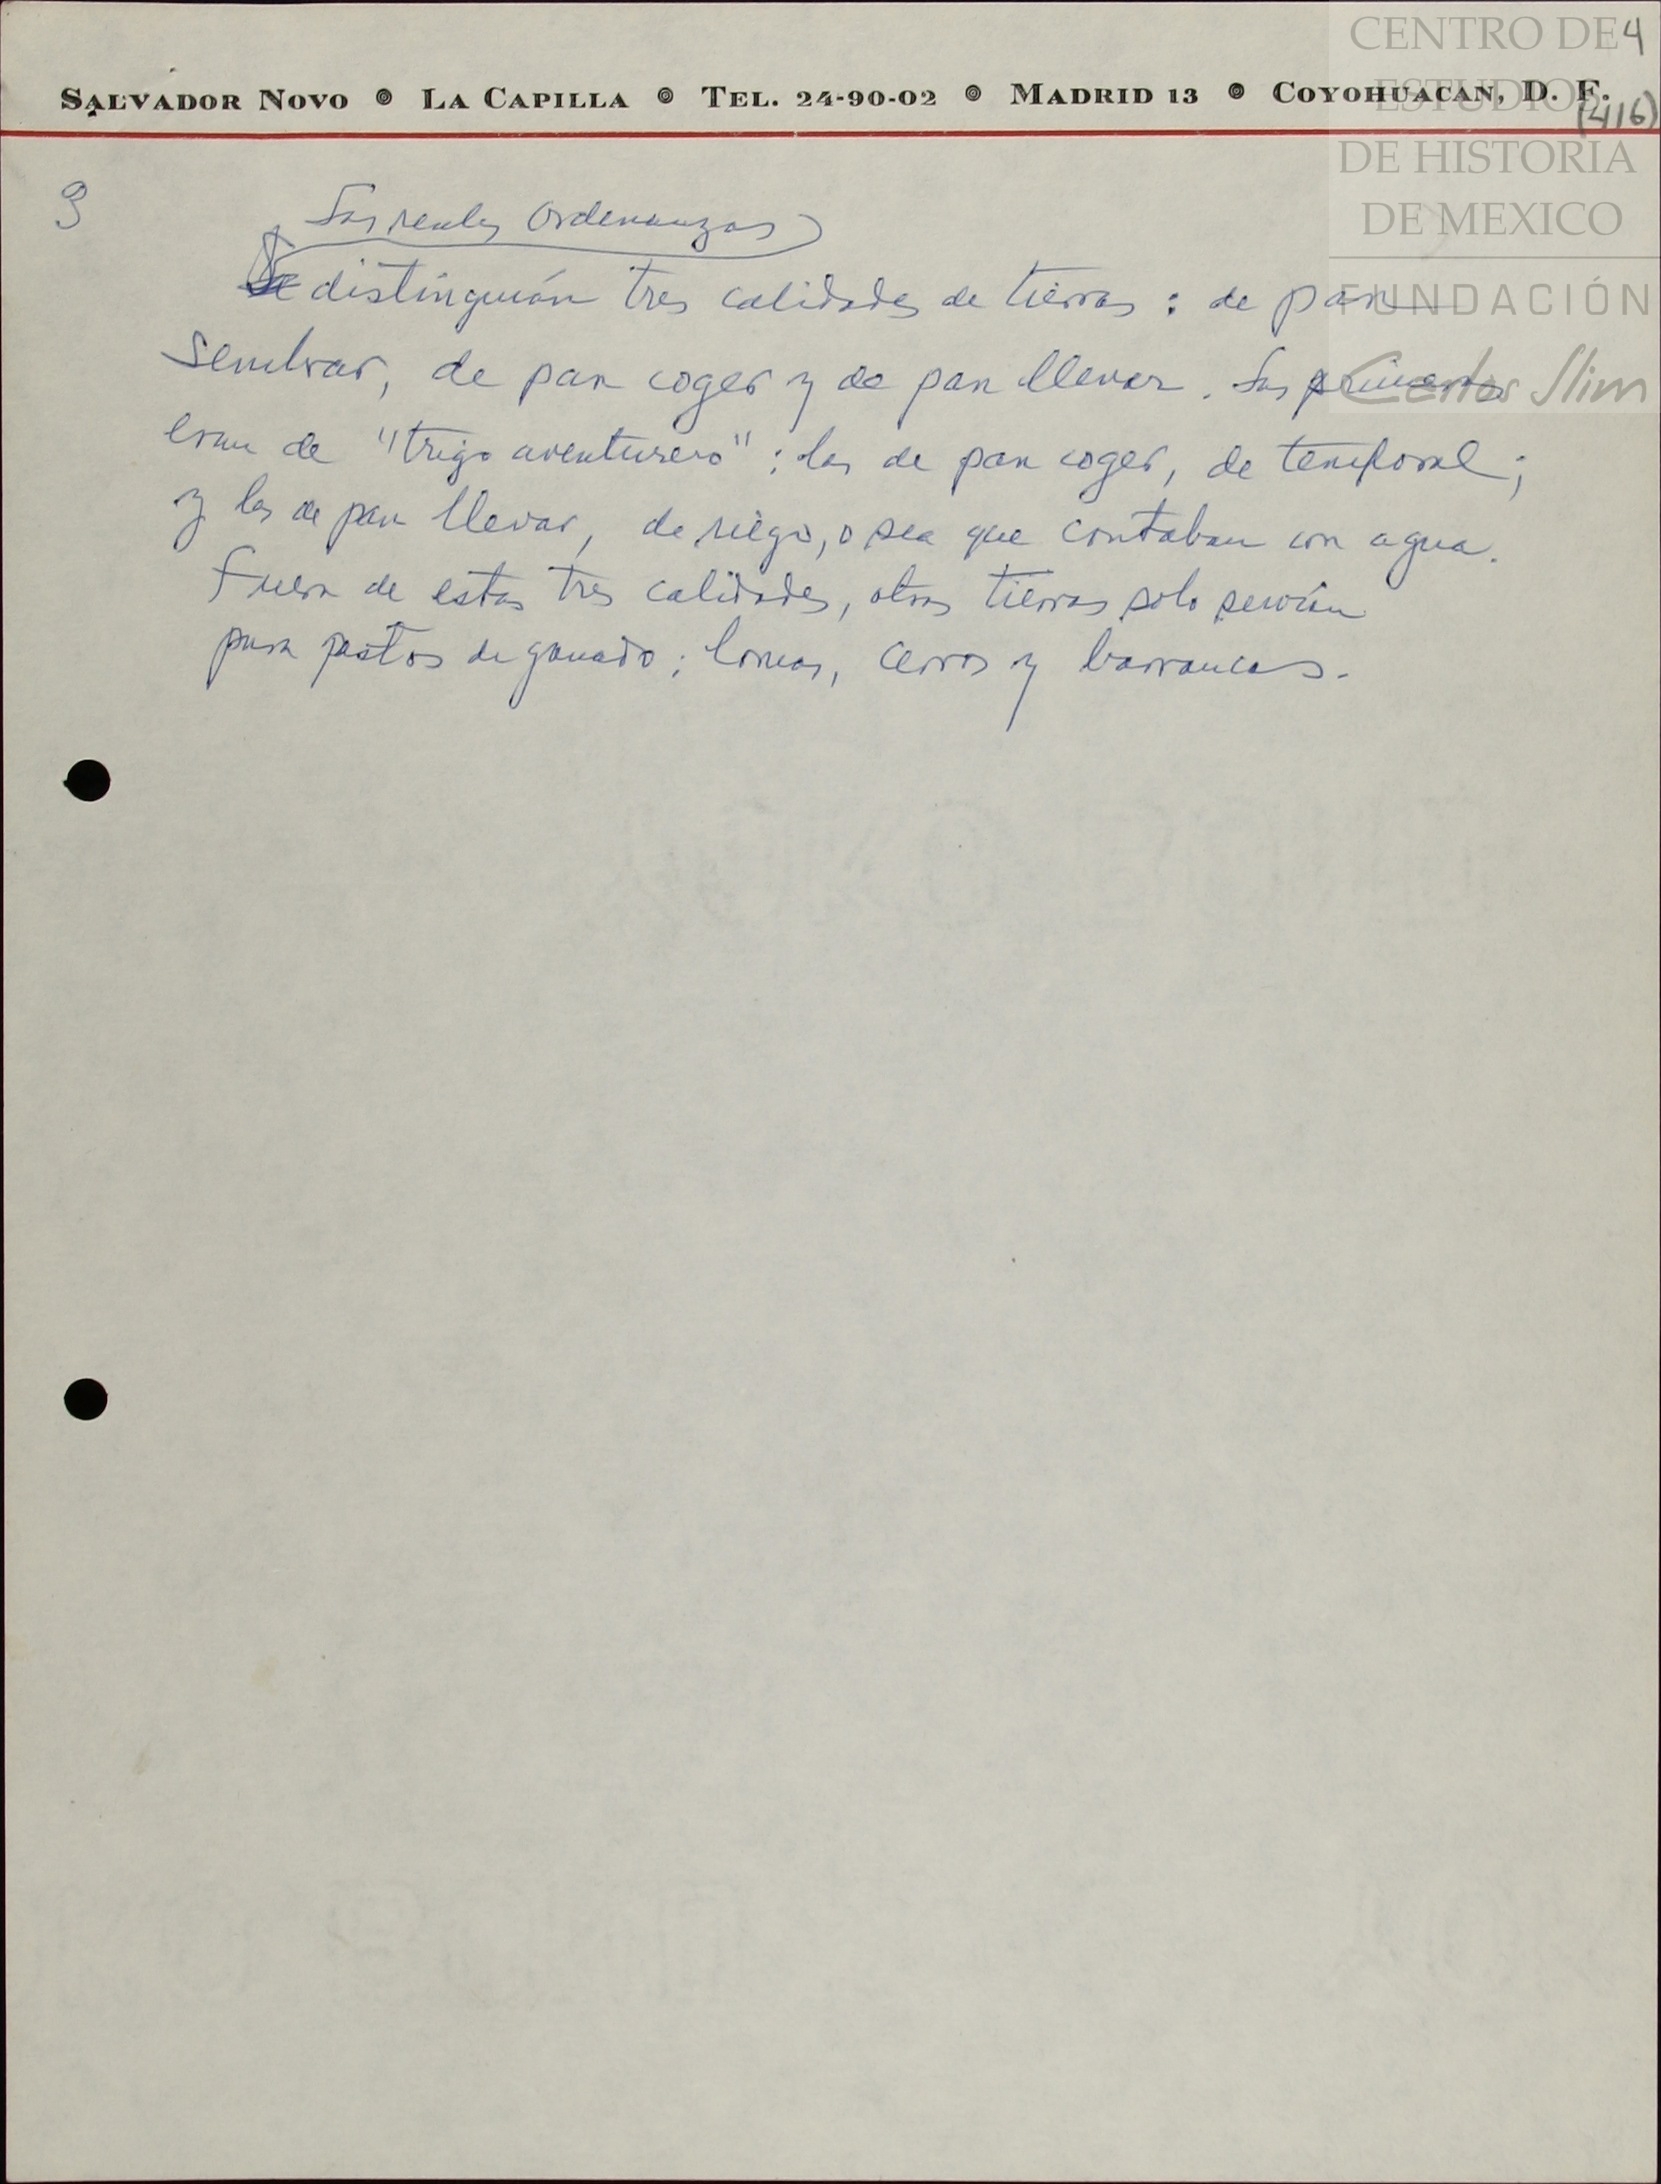 4
SALVADOR NOVO ◎ LA CAPILLA ◎ TEL. 24-90-02 ◎ MADRID 13 ◎ COYOHUACAN, D. F.
(416)
CENTRO DE
ESTUDIOS
DE HISTORIA
DE MEXICO
FUNDACIÓN
Carlos Slim
3
Las reales Ordenanzas
Se distinguían tres calidades de tierras: de pan
sembrar, de pan coger y de pan llevar. Las primeras
eran de "trigo aventurero"; las de pan coger, de temporal;
y las de pan llevar, de riego, o sea que contaban con agua.
Fuera de estas tres calidades, otras tierras solo servían
para pastos de ganado: lomas, cerros y barrancas.